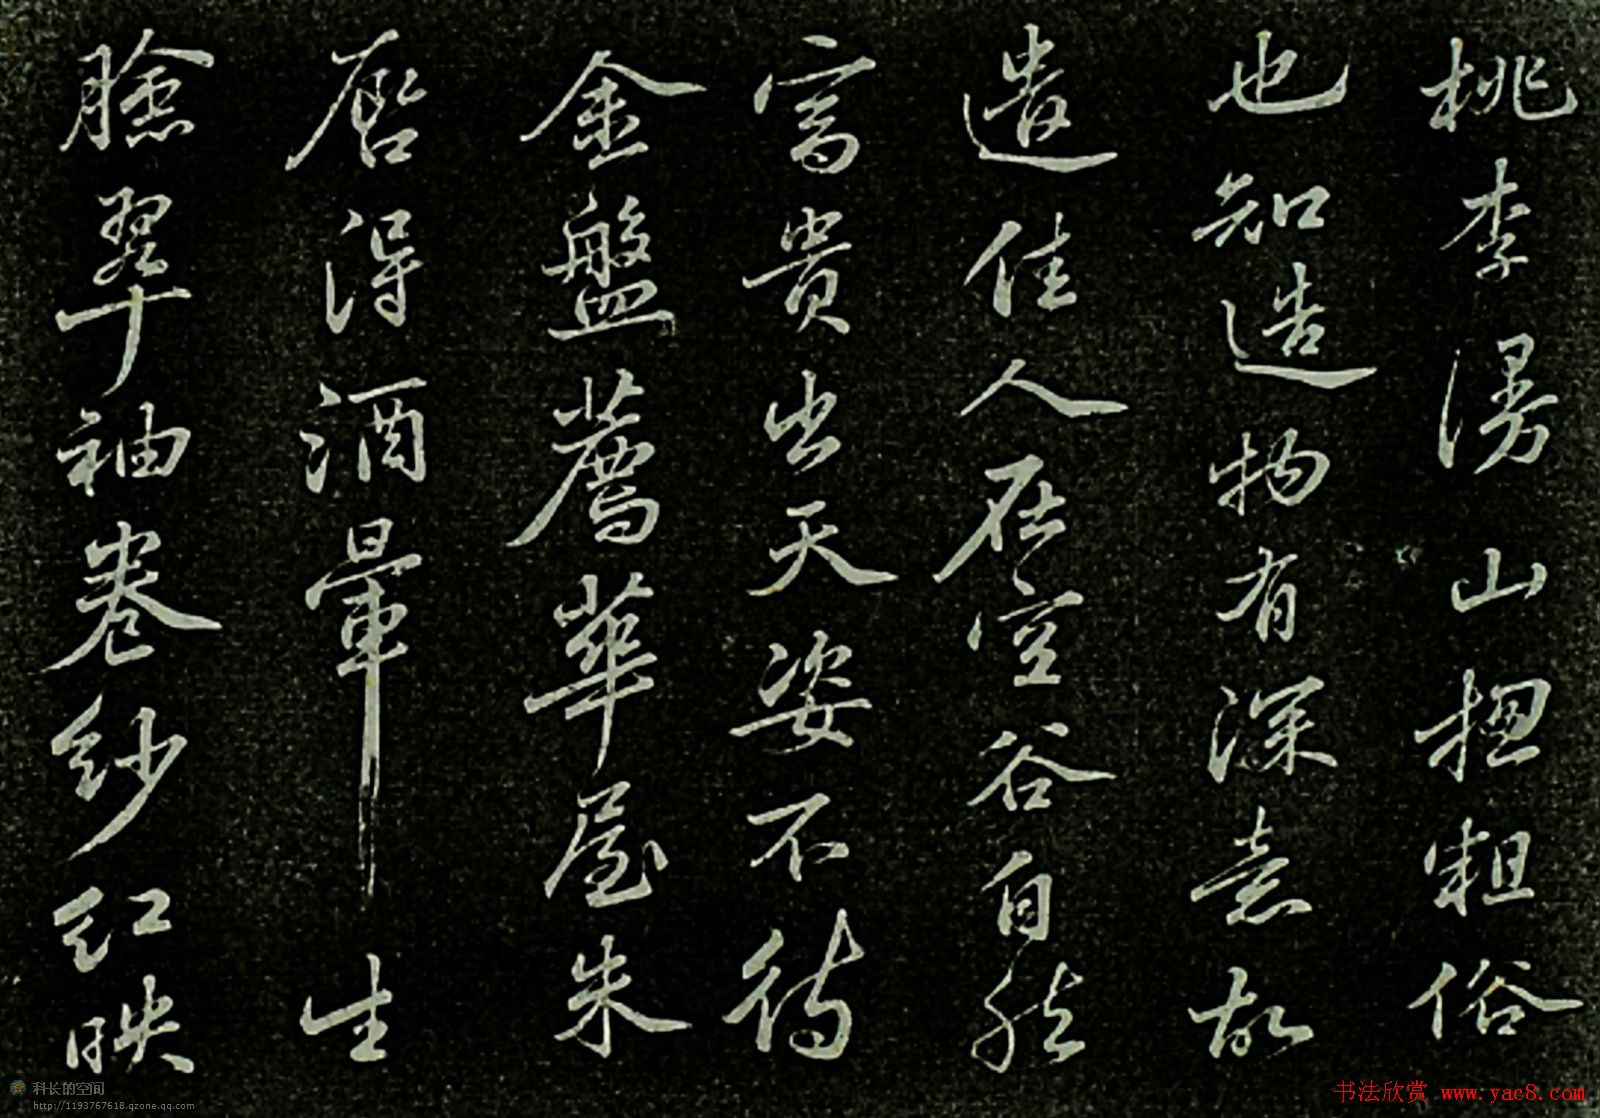 桃李漫山揔粗俗
也知造物有深意故
遣佳人在空谷自然
富貴出天姿不待
金盤薦華屋朱
唇得酒暈生
臉翠袖卷紗紅映
科长的空间
http://1193767618.qzone.qq.com
书法欣赏 www.yac8.com